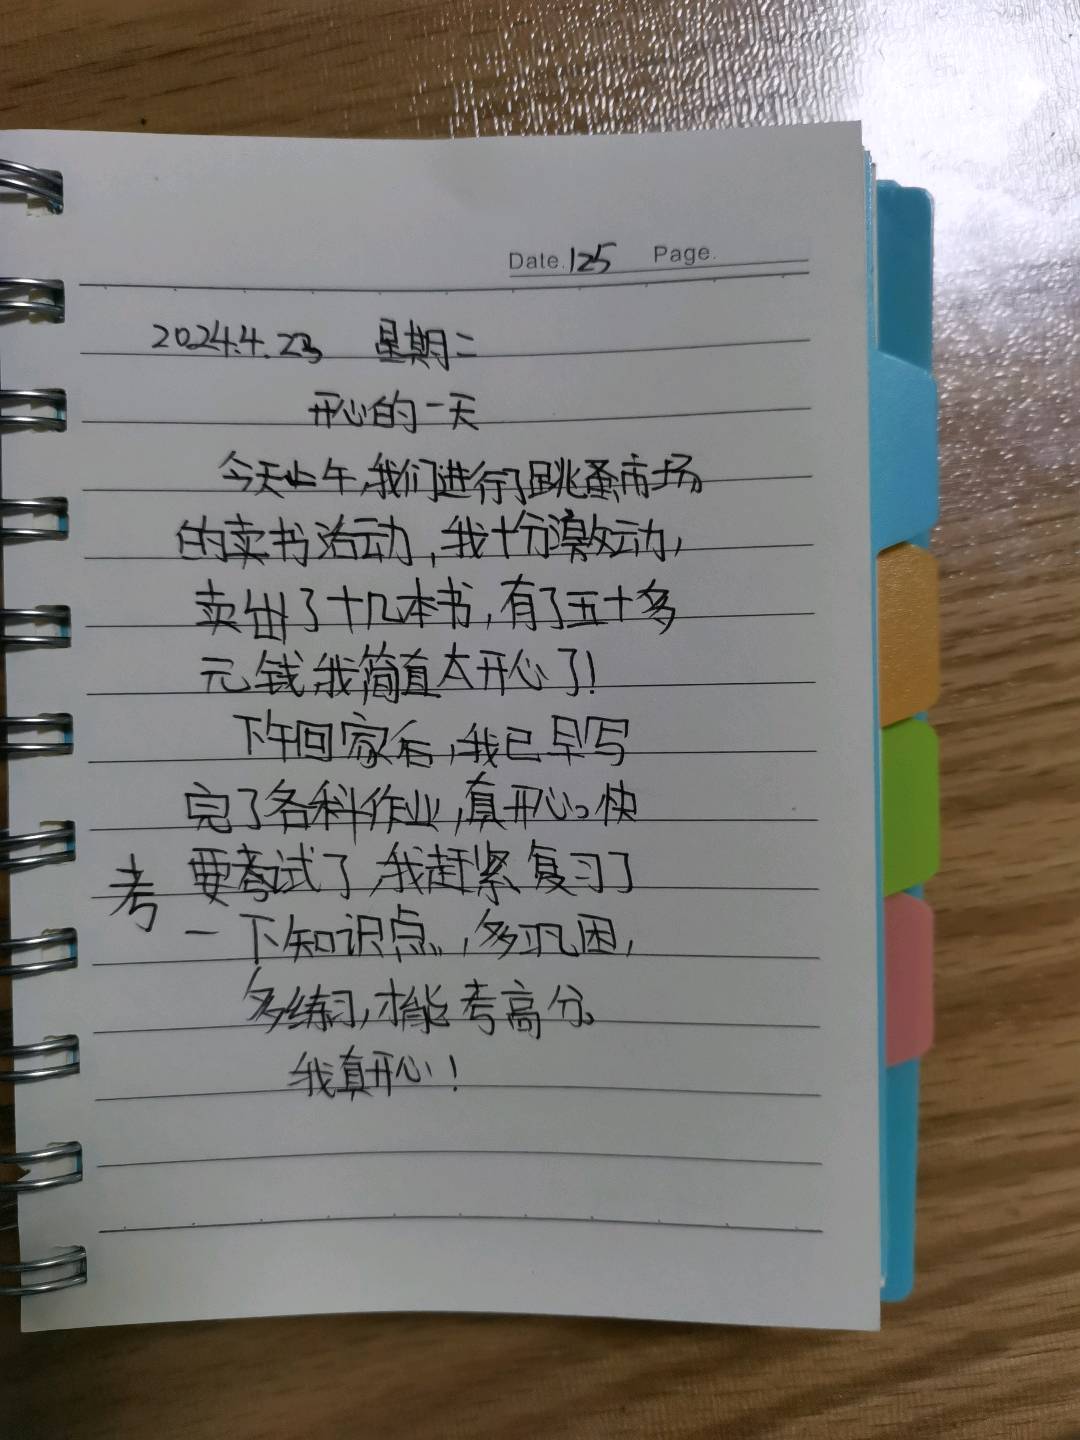 Date.125 Page.
2024.4.23 星期二
开心的一天
今天上午,我们进行了跳蚤市场
的卖书活动,我十分激动,
卖出了十几本书,有了五十多
元钱,我简直太开心了!
下午回家后,我已早写
完了各科作业,真开心。快
要考试了,我赶紧复习了
考
一下知识点,多巩固,
多练习,才能考高分。
我真开心!